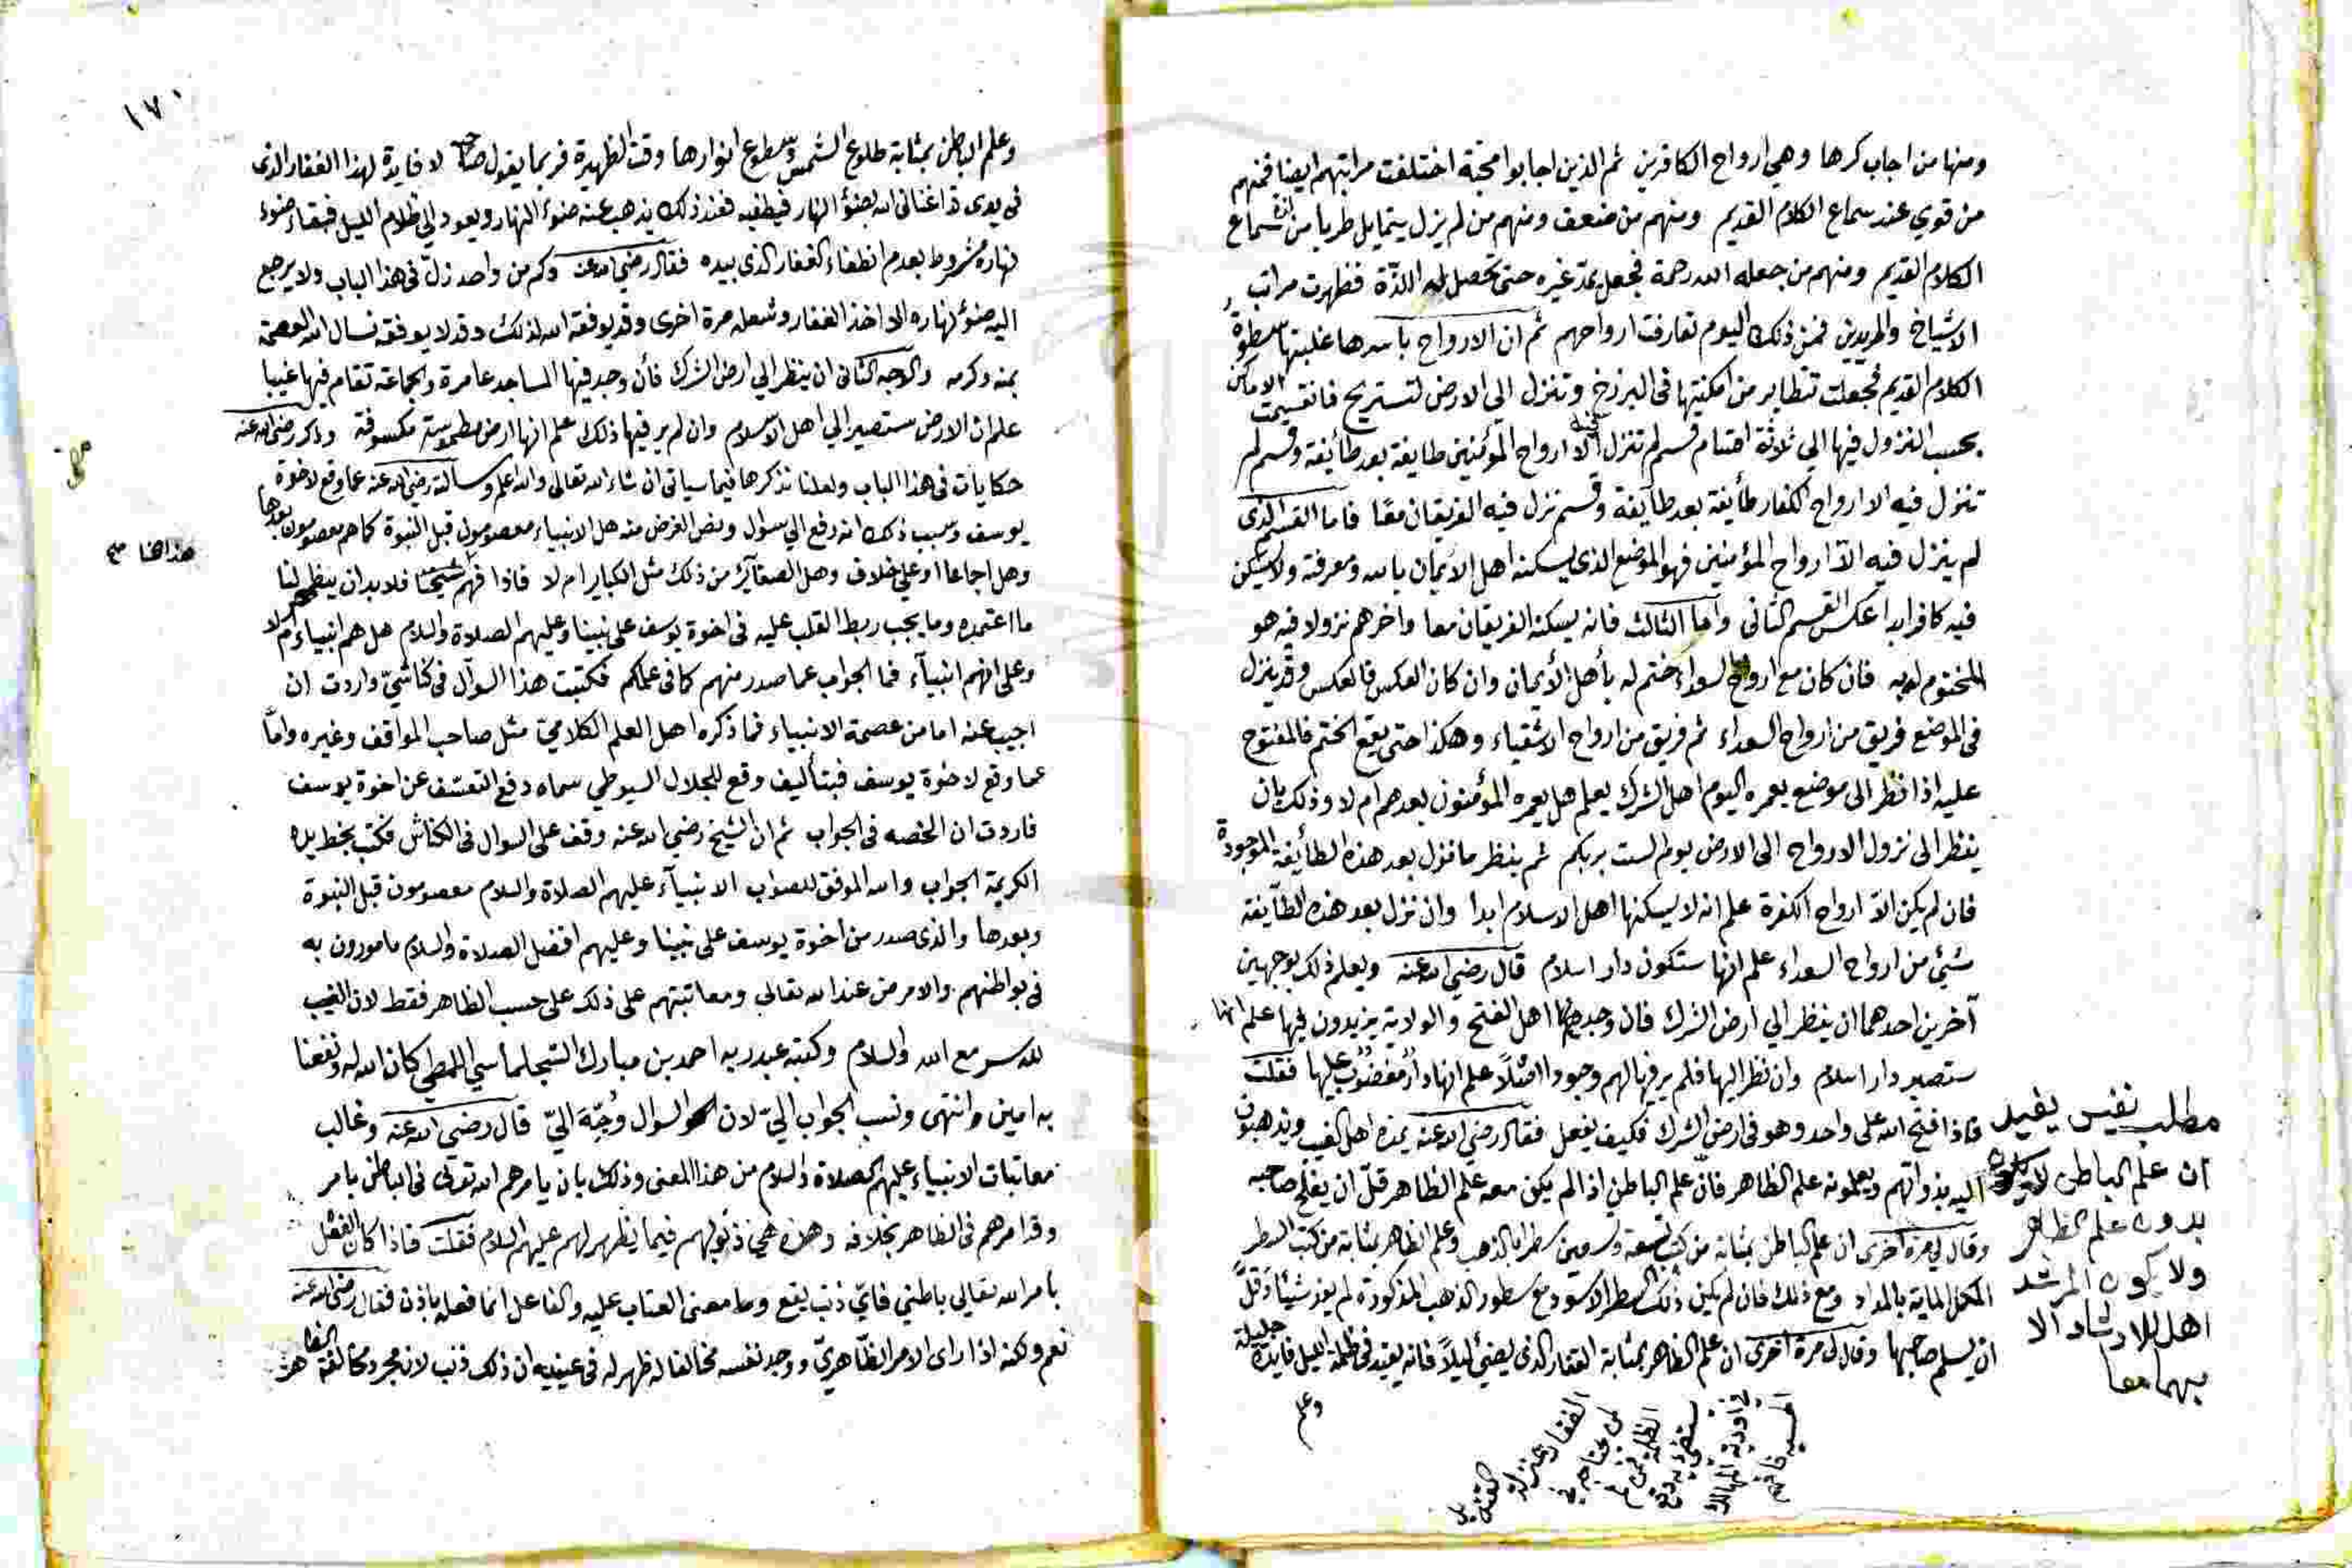 ومنها من اجاب كرها وهي ارواح الكافرين ثم الذين اجابوا محبة اختلفت مراتبهم ايضا فمنهم
من قوي عند سماع الكلام القديم ومنهم من ضعف ومنهم من لم يزل يتمايل طربا من لذة سماع
الكلام القديم ومنهم من جعله الله رحمة فجعل يمد غيره حتى تحصل له اللذة فظهرت مراتب
الاشياخ والمريدين فمن ذلك اليوم تعارفت ارواحهم ثم ان الارواح باسرها غلبتها سطوة
الكلام القديم فجعلت تتطاير من امكنتها في البرزخ وتنزل الي الارض لتستريح فانقسمت الاماكن
بحسب النزول فيها الي ثلاثة اقسام قسم لم تنزل فيه الا ارواح المؤمنين طايفة بعد طائفة وقسم لم
تنزل فيه الا ارواح الكفار طايفة بعد طايفة وقسم نزل فيه الفريقان معًا فاما القسم الذى
لم ينزل فيه الا ارواح المؤمنين فهو الموضع الذى يسكنه اهل الايمان بالله ومعرفته ولا يسكن
فيه كافر ابدا عكس القسم الثانى واما الثالث فانه يسكنه الفريقان معا واخرهم نزولا فيه هو
المختوم له به فان كان مع ارواح السعداء ختم له بأهل الأيمان وان كان العكس فالعكس وقد ينزل
فى الموضع فريق من ارواح السعداء ثم فريق من ارواح الاشقياء وهكذا حتى يقع الختم فالمفتوح
عليه اذا نظر الى موضع يعمره اليوم اهل الشرك يعلم هل يعمره المؤمنون بعدهم ام لا وذلك بان
ينظر الى نزول الارواح الى الارض يوم الست بربكم ثم ينظر ما نزل بعد هذه الطائفة الموجودة
فان لم يكن الا ارواح الكفرة علم انه لا يسكنها اهل الاسلام ابدا وان نزل بعد هذه الطايفة
شئ من ارواح السعداء علم انها ستكون دار اسلام قال رضي الله عنه ويعلم ذلك بوجهين
آخرين احدهما ان ينظر الي ارض الشرك فان وجد اهل الفتح والولاية يزيدون فيها علم انها
ستصير دار اسلام وان نظر اليها فلم ير فيها لهم وجودا اصلًا علم انها دار مغضوب عليها فقلت
فاذا فتح الله على واحد وهو فى ارض الشرك فكيف يفعل فقال رضي الله عنه يمده اهل الغيب ويذهبون
اليه بذواتهم ويعلمونه علم الظاهر فان علم الباطن اذا لم يكن معه علم الظاهر قل ان يفلح صاحبه
وقال لي مرة اخرى ان علم الباطن بمثابة من كتب تسعة وتسعين سطرا بالذهب وعلم الظاهر بمثابة من كتب السطر
المكمل الماية بالمداد ومع ذلك فان لم يكن ذلك السطر الاسود مع سطور الذهب المذكورة لم يفد شيئا وقل
ان يسلم صاحبها وقال لى مرة اخرى ان علم الظاهر بمثابة الفنار الذى يضئ ليلًا فانه يفيد فى ظلمة الليل فايدة جليلة
وعلم
مطلب نفيس يفيد
ان علم الباطن لا يكون
بدون علم الظاهر
ولا يكون المرشد
اهل للارشاد الا
بهما معا
١٧٠
وعلم الباطن بمثابة طلوع الشمس وسطوع انوارها وقت الظهيرة فربما يقول صاحبه لا فايدة لهذا الفنار الذى
فى يدى قد اغنانى الله بضوء النهار فيطفيه فعند ذلك يذهب عنه ضوء النهار ويعود الي ظلام الليل فبقاء ضوء
نهاره مشروط بعدم انطفاء الفنار الذى بيده فقال رضي الله عنه وكم من واحد زلّ فى هذا الباب ولا يرجع
اليه ضوء نهاره الا اخذ الفنار وشعله مرة اخرى وقد يوفقه الله لذلك وقد لا يوفقه نسال الله العصمة
بمنه وكرمه والوجه الثانى ان ينظر الي ارض الشرك فأن وجد فيها المساجد عامرة والجماعة تقام فيها غيبا
علم ان الارض ستصير الي اهل الاسلام وان لم ير فيها ذلك علم انها ارض مطموسة مكسوفة وذكر رضي الله عنه
حكايات فى هذا الباب ولعلنا نذكرها فيما سياتى ان شاء الله تعالى والله اعلم وسالته رضي الله عنه عما وقع لاخوة
يوسف وسبب ذلك انه رفع الي سؤال ونص الغرض منه هل الانبياء معصومون قبل النبوة كما هم معصومون بعدها
وهل اجماعا او على خلاف وهل الصغاير من ذلك مثل الكباير ام لا فاذا فهم شيخنا فلا بد ان ينظر لنا
ما اعتمده وما يجب ربط القلب عليه فى اخوة يوسف على نبينا وعليهم الصلاة والسلام هل هم انبياء ام لا
وعلى انهم انبيآء فما الجواب عما صدر منهم كما فى علمكم فكتبت هذا السوآل فى كناشي واردت ان
اجيب عنه اما من عصمة الانبياء فما ذكره اهل العلم الكلامي مثل صاحب المواقف وغيره واما
عما وقع لاخوة يوسف فبتأليف وقع للجلال السيوطي سماه دفع التعسف عن اخوة يوسف
فاردت ان الخصه فى الجواب ثم ان الشيخ رضي الله عنه وقف على السوال فى الكناش فكتب بخط يده
الكريمة الجواب والله الموفق للصواب الانبيآء عليهم الصلاة والسلام معصومون قبل النبوة
وبعدها والذى صدر من اخوة يوسف على نبينا وعليهم افضل الصلاة والسلام مامورون به
فى بواطنهم والامر من عند الله تعالى ومعاتبتهم على ذلك على حسب الظاهر فقط لان الغيب
لله سر مع الله والسلام وكتبه عبد ربه احمد بن مبارك السجلماسي اللمطي كان الله له ونفعنا
به امين وانتهى ونسب الجواب اليّ لان السوال وُجّهَ اليّ قال رضي الله عنه وغالب
معاتبات الانبياء عليهم الصلاة والسلام من هذا المعنى وذلك بان يامرهم الله تعالى فى الباطن بامر
وقد امرهم فى الظاهر بخلافه وهذه هي ذنوبهم فيما يظهر لهم عليهم السلام فقلت فاذا كان الفعل
بامر الله تعالي باطني فايّ ذنب يقع وما معنى العتاب عليه والفاعل انما فعل باذن فقال رضي الله عنه
نعم ولكنه اذا راى الامر الظاهريّ ووجد نفسه مخالفا له ظهر له فى عينيه ان ذلك ذنب لانه مجرد مخالفة